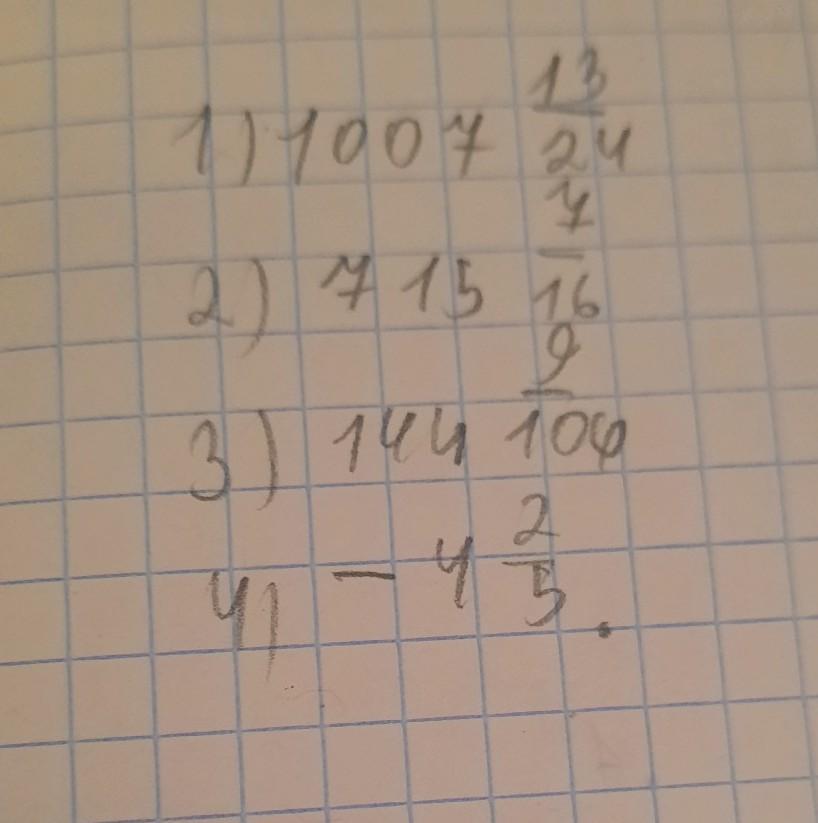 1) 1007 13/24
2) 715 7/16
3) 144 9/104
4) - 4 2/5.